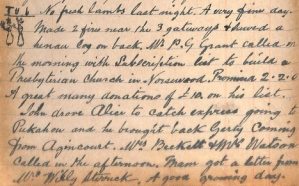 No fresh lambs last night. A very fine day.
Made a fire near the 3 gateways & hewed a
henau log on back. Mr P. G. Grant called in
the morning with Subscription list to build a
Presbyterian Church in Norsewood. Promised 2.2.0
A great many donations of £10 on his list.
John drove Alice to catch express going to
Pukahou and he brought back Gerty Coming
from Agincourt. Mrs Beckett & Mrs Watson
Called in the afternoon. Mam got a letter from
Mrs Willy A good growing day.